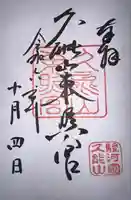 奉拝
久能山東照宮
令和二年
十月四日
駿河國
久能山